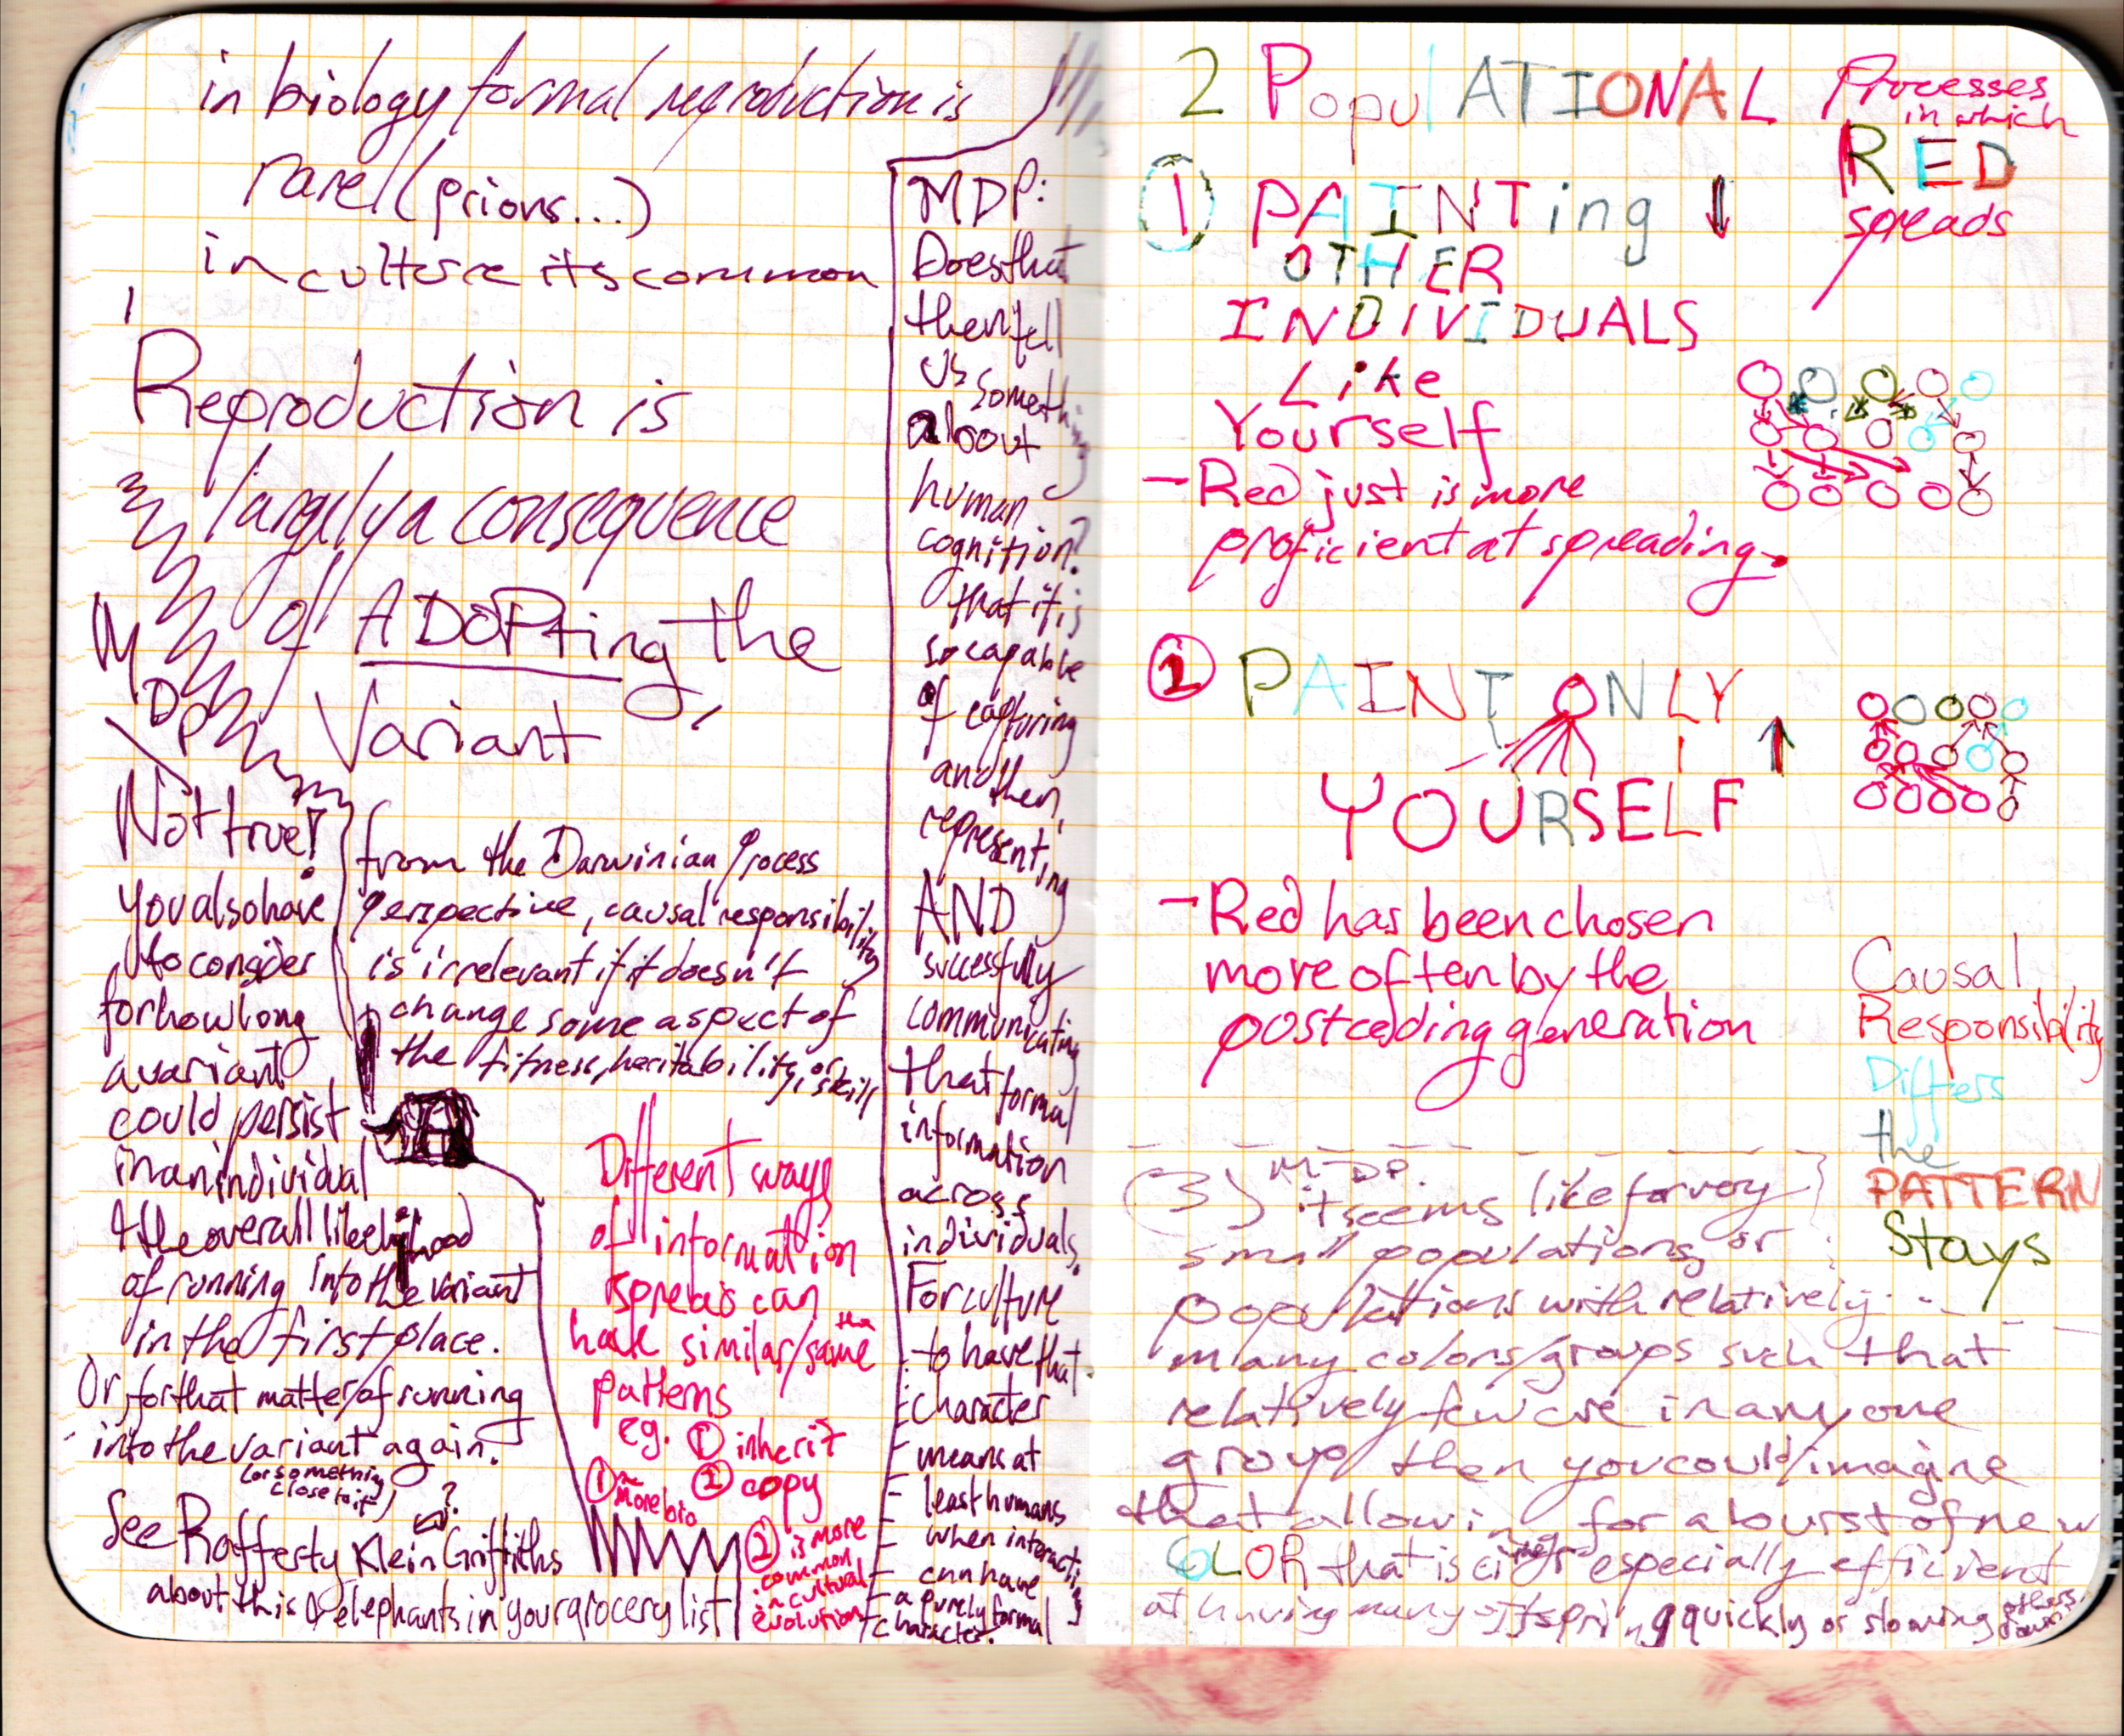 in biology formal reproduction is
rare (prions...)
in culture its common
Reproduction is
largely a consequence
of ADOPting the
Variant
MDP
Not true!
you also have
to consider
for how long
a variant
could persist
in an individual
& the overall likelihood
of running into the variant
in the first place.
Or, for that matter, of running
into the variant again.
(or something
close to it)
?
See Rafferty Klein Griffiths
about this & elephants in your grocery list
from the Darwinian Process
Perspective, causal responsibility
is irrelevant if it doesn't
change some aspect of
the fitness, heritability, or skill
Different ways
of information
spreads can
have similar/the same
patterns
eg. ① inherit
② copy
① more bio
② is more
common
in cultural
evolution
MDP:
Does that
then tell
us something
about
human
cognition?
that it is
so capable
of capturing
another,
representing
AND
successfully
communicating
that formal
information
across
individuals.
For culture
to have that
character
means at
least humans
when interacting
can have
a purely formal
character.
2 PopulATIONAL Processes
in which
RED
spreads
① PAINTing ↓
OTHER
INDIVIDUALS
Like
Yourself
- Red just is more
proficient at spreading.
② PAINT ONLY ↑
YOURSELF
- Red has been chosen
more often by the
postceding generation
Causal
Responsibility
Differs
the
PATTERN
Stays
(3) MDP:
it seems like for very
small populations or
populations with relatively
many colors/groups such that
relatively few are in any one
group, then you could imagine
that allowing for a burst of new
COLOR that is either especially efficient
at having many offspring quickly or slowing others down